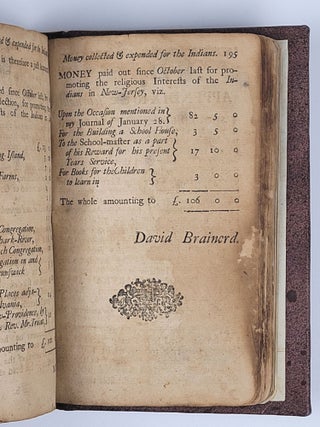 Money collected & expended for the Indians. 195
MONEY paid out since October last for pro-
moting the religious Interests of the In-
dians in New-Jersey, viz.
Upon the Occasion mentioned in
my Journal of January 28. 82 5 0
For the Building a School House; 3 5 0
To the School-master as a part
of his Reward for his present 17 10 0
Years Service,
For Books for the Children
to learn in 3 0 0
The whole amounting to £. 106 0 0
David Brainerd.
Money collected & expended for the In
is therefore a just
lection, for promoting
ts of the Indians in
ng Island,
Farms,
Congregation,
hark-River,
ch Congregation,
egation in and
unswick
Places adja-
lvania,
w-Providence,
Rev. Mr. Treat,
amounting to £